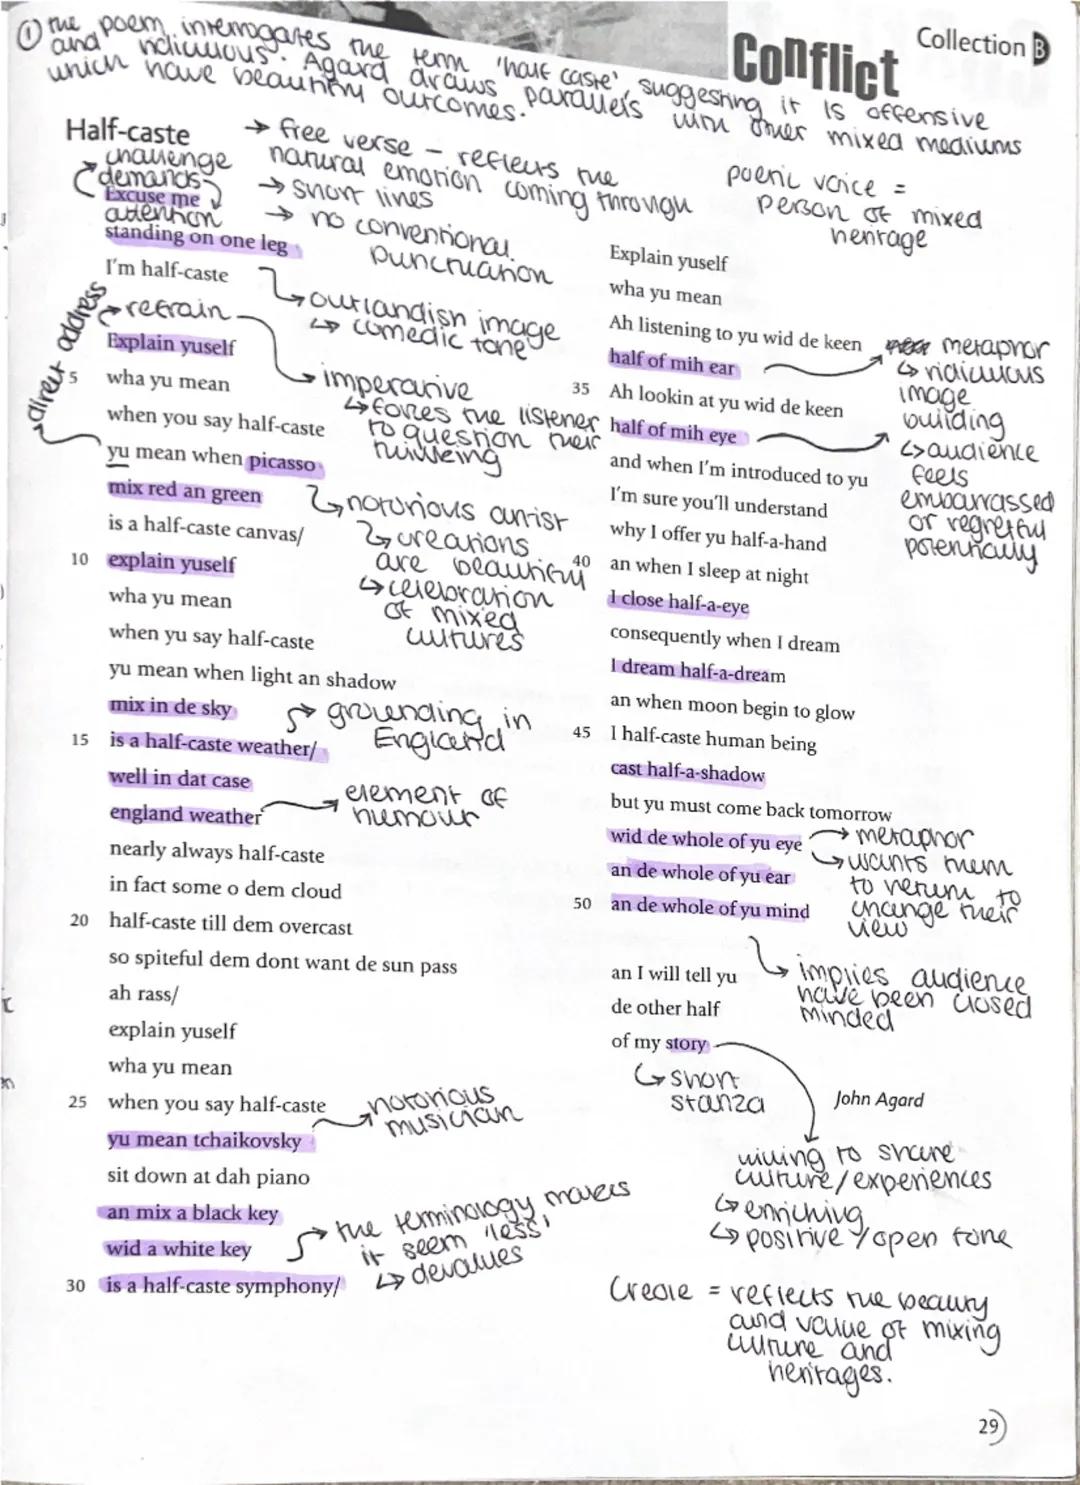 Collection B
Conflict
① The poem interrogates the term 'half caste', suggesting it is offensive
and ridiculous. Agard draws parallels with other mixed mediums
which have beautiful outcomes.
Half-caste
→ free verse - reflects the
natural emotion coming through
→ short lines
→ no conventional
punctuation
poetic voice =
person of mixed
heritage
challenge
demands
Excuse me
attention
standing on one leg
I'm half-caste
outlandish image
↳ comedic tone
direct address
refrain
Explain yuself
imperative
↳ forces the listener
to question their
thinking
5 wha yu mean
when you say half-caste
yu mean when picasso
mix red an green
notorious artist
↳ creations
are beautiful
↳ celebration
of mixed
cultures
is a half-caste canvas/
10 explain yuself
wha yu mean
when yu say half-caste
yu mean when light an shadow
mix in de sky
→ grounding in
England
15 is a half-caste weather/
well in dat case
england weather
element of
humour
nearly always half-caste
in fact some o dem cloud
20 half-caste till dem overcast
so spiteful dem dont want de sun pass
ah rass/
explain yuself
wha yu mean
25 when you say half-caste
notorious
musician
yu mean tchaikovsky
sit down at dah piano
an mix a black key
wid a white key
the terminology makes
it seem 'less'
↳ devalues
30 is a half-caste symphony/
Explain yuself
wha yu mean
Ah listening to yu wid de keen
half of mih ear
metaphor
↳ ridiculous
image
building
↳ audience
feels
embarrassed
or regretful
potentially
35 Ah lookin at yu wid de keen
half of mih eye
and when I'm introduced to yu
I'm sure you'll understand
why I offer yu half-a-hand
40 an when I sleep at night
I close half-a-eye
consequently when I dream
I dream half-a-dream
an when moon begin to glow
45 I half-caste human being
cast half-a-shadow
but yu must come back tomorrow
wid de whole of yu eye
an de whole of yu ear
50 an de whole of yu mind
metaphor
↳ wants them
to return to
change their
view
implies audience
have been closed
minded
an I will tell yu
de other half
of my story
↳ short
stanza
John Agard
willing to share
culture/experiences
↳ enriching
↳ positive/open tone
Creole = reflects the beauty
and value of mixing
culture and
heritages.
29